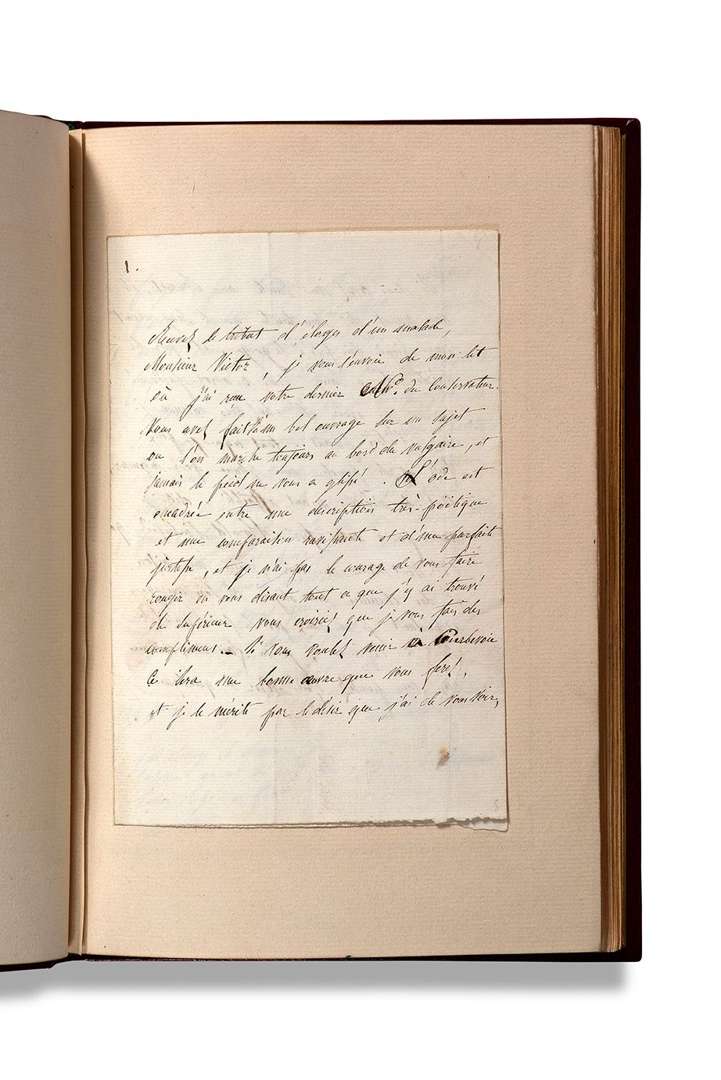 1.
Recevez le tribut d'éloges d'un malade,
Monsieur Victor, je vous l'envoie de mon lit
où j'ai reçu votre dernier N.º du Conservateur.
Vous avez fait un bel ouvrage sur un sujet
où l'on marche toujours au bord du vulgaire, et
jamais le pied ne vous a glissé. L'ode est
encadrée entre une description très-poëtique
et une comparaison ravissante et d'une parfaite
justesse, et je n'ai pas le courage de vous faire
rougir en vous disant tout ce que j'y ai trouvé
de supérieur vous croiriez que je vous fais des
complimens. Si vous voulez venir à Courbevoie
ce sera une bonne œuvre que vous ferez,
et je le mérite par le désir que j'ai de vous voir,